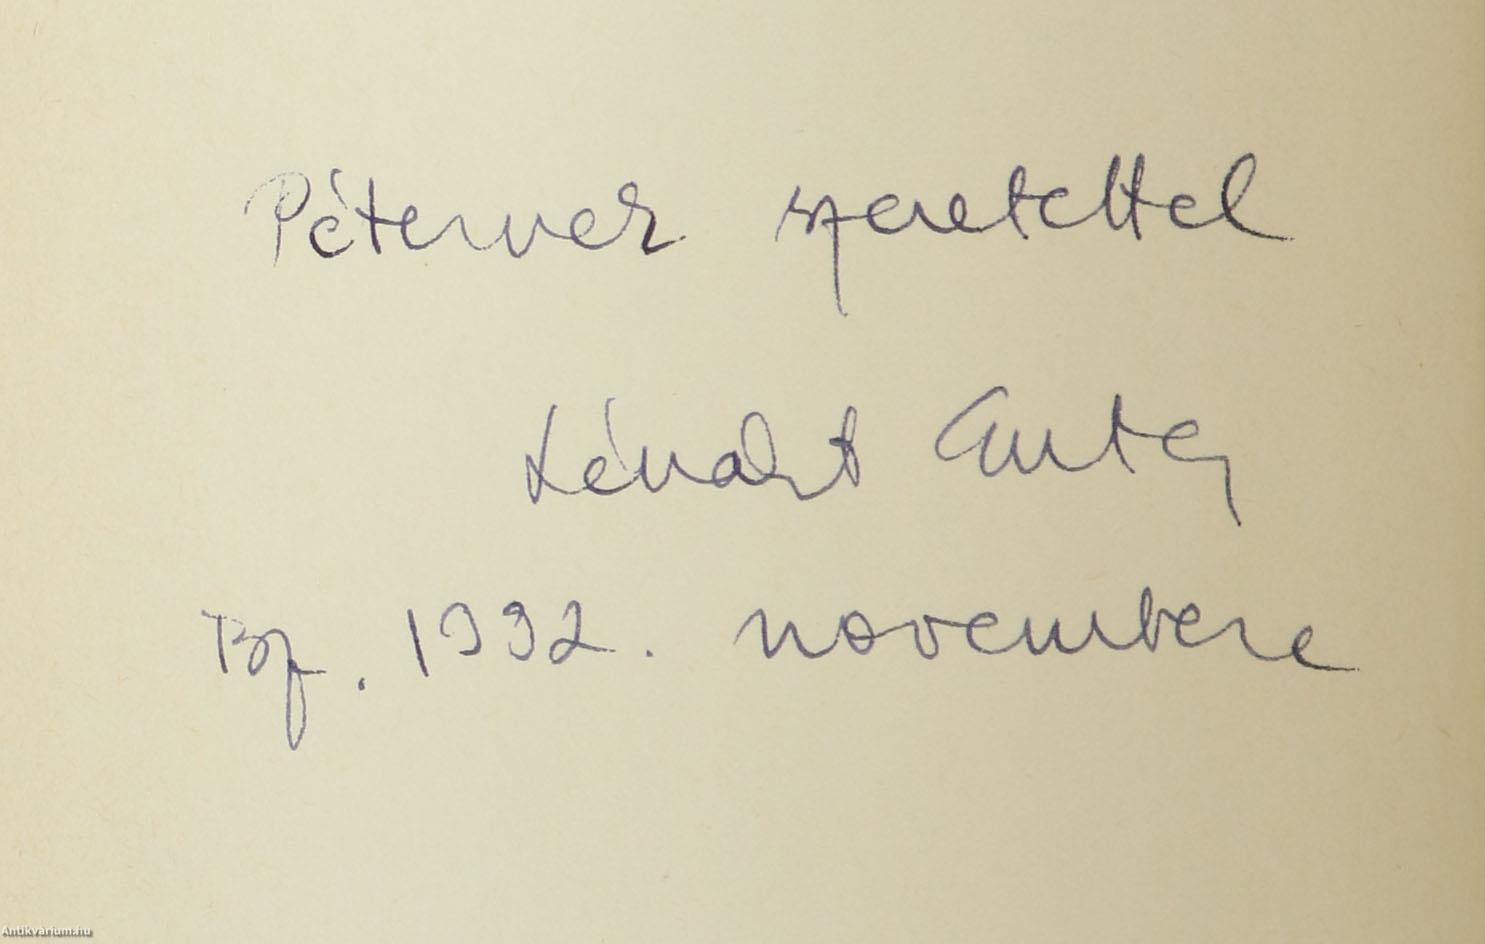 Péternek szeretettel
Lénárt
Bp. 1992. novembere
Antikvarium.hu